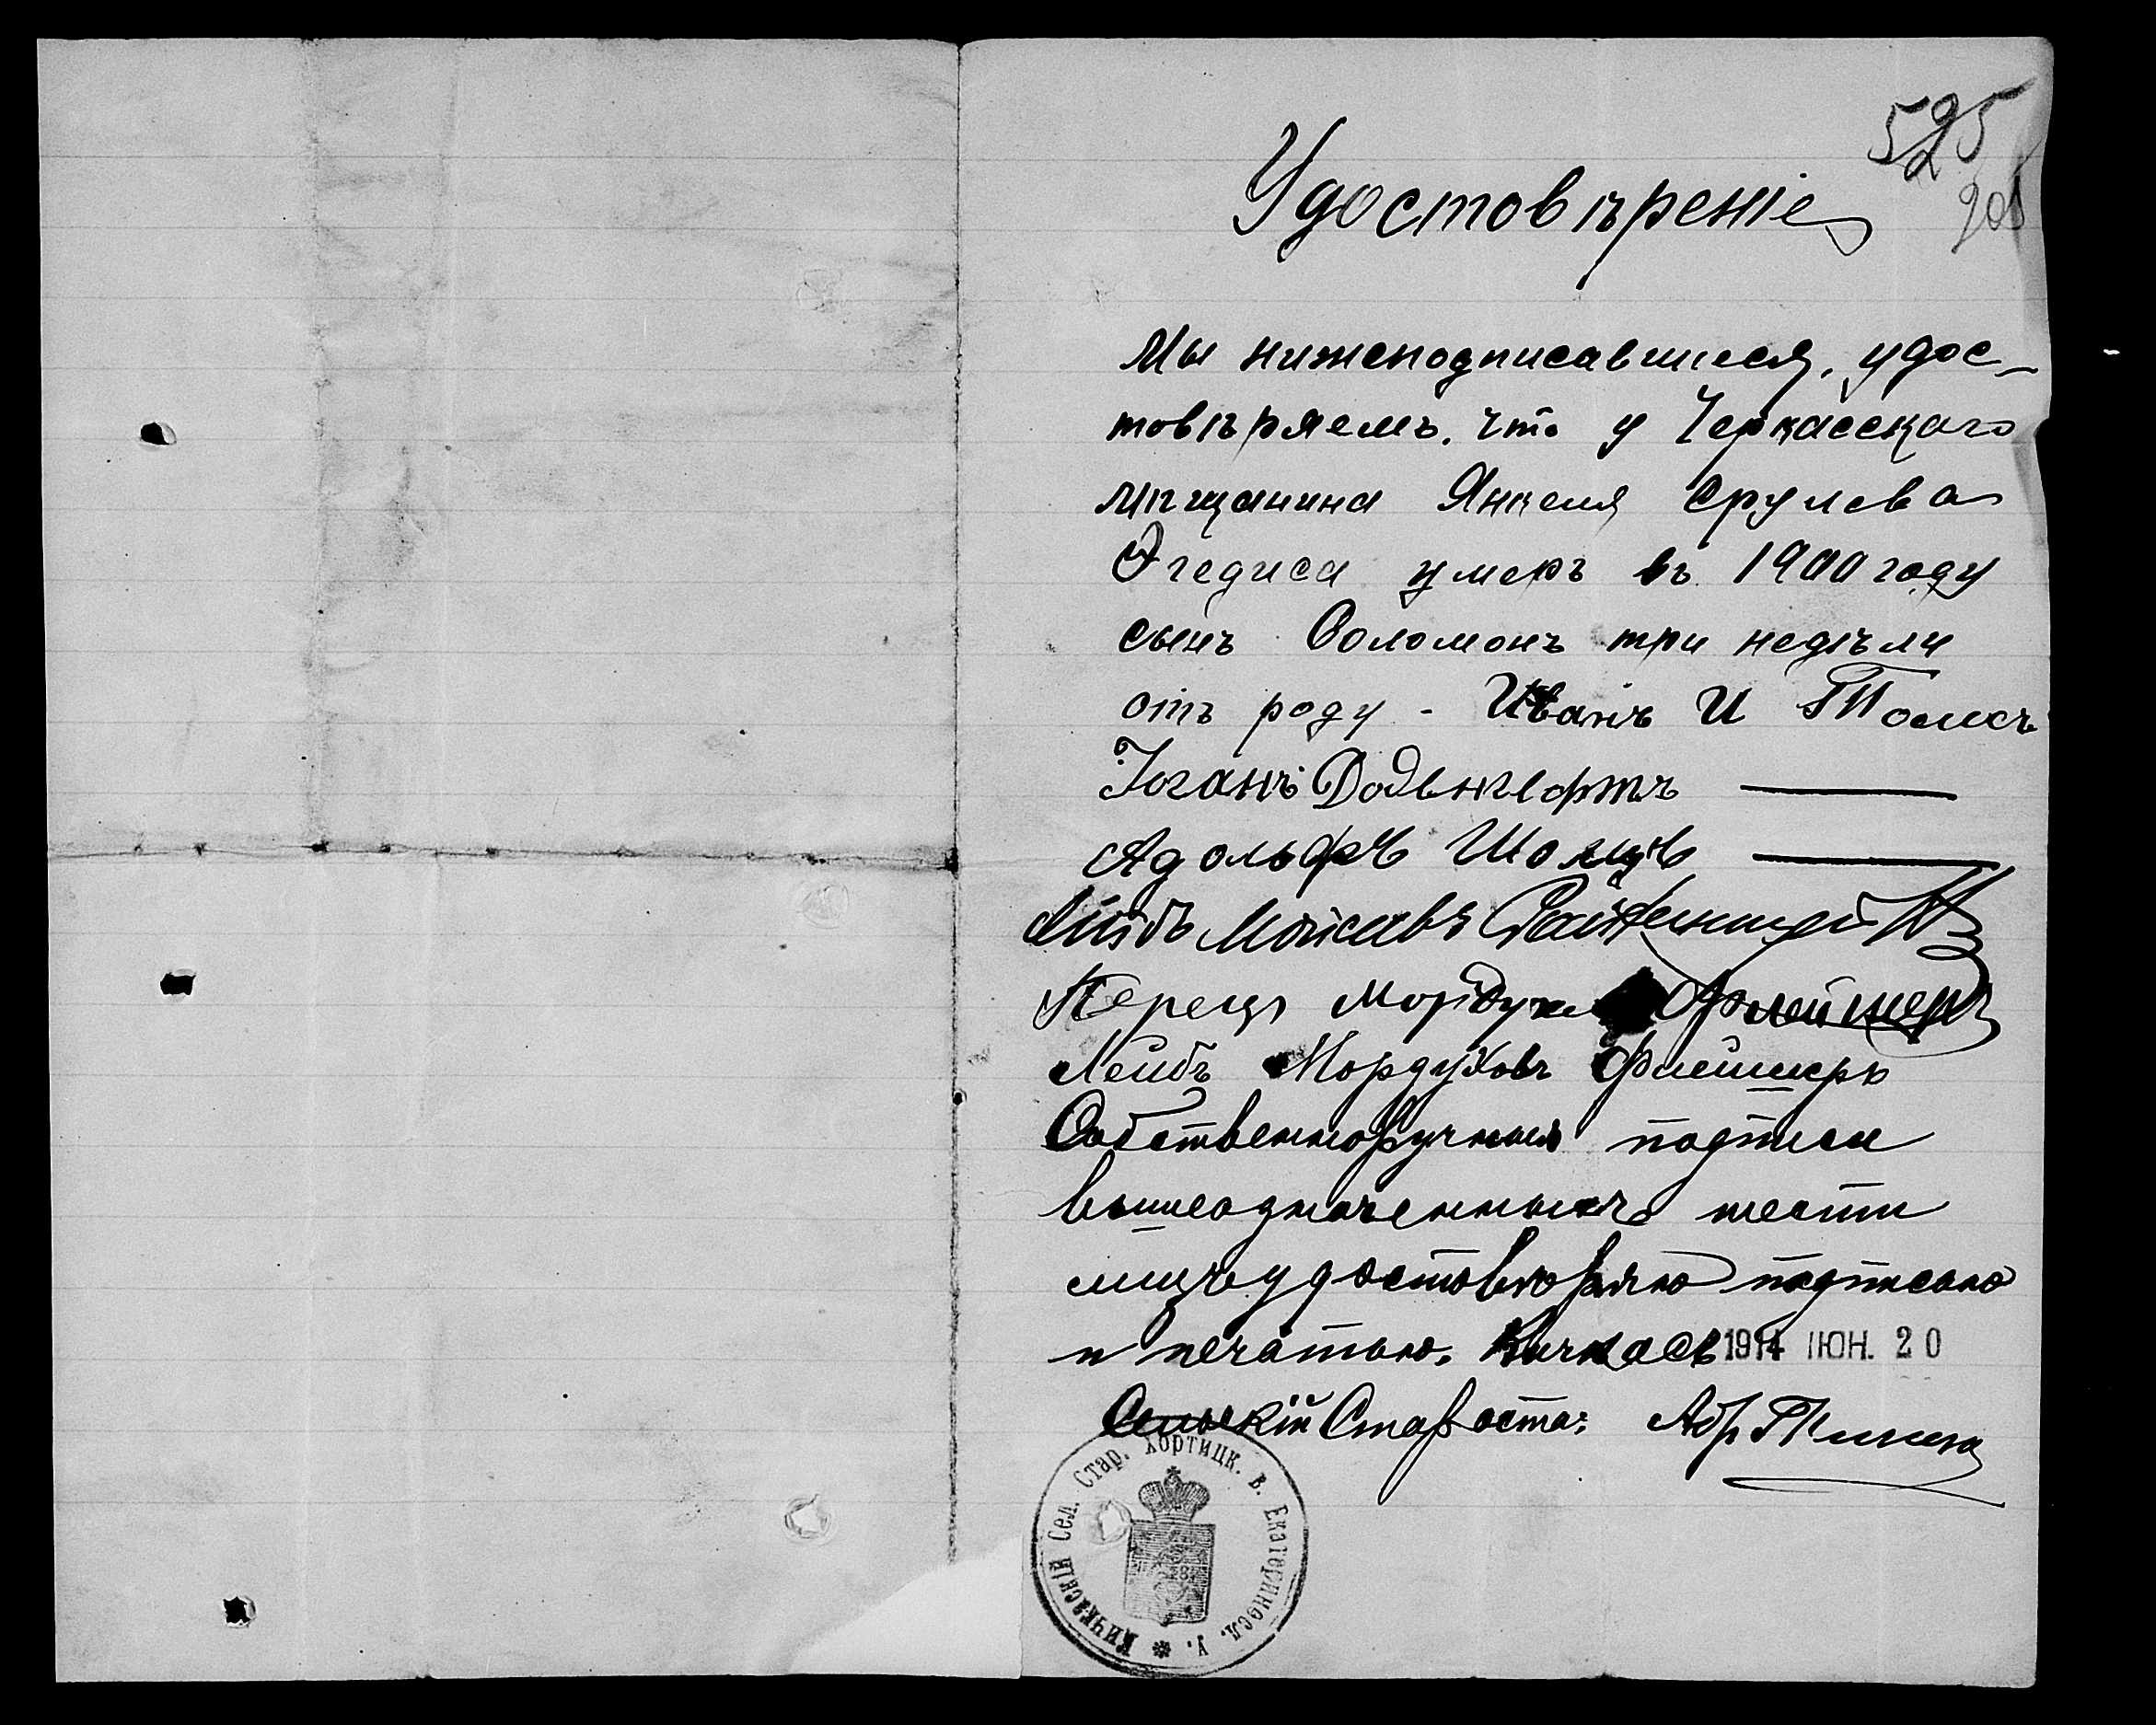 525
Удостовѣреніе
Мы нижеподписавшиеся, удос-
товѣряемъ. что у Черкасскаго
мѣщанина Янкеля Срулева
Эгедиса умеръ въ 1900 году
сынъ Соломонъ три недѣли
отъ роду - Иванъ И
Іоганъ
Адольфъ Шольцъ
Мойсеевъ
Перецъ Мордухъ Флейшеръ
Лейбъ Мордуховъ Флейшеръ
Собственноручныя подписи
вышеозначенныхъ шести
лицъ удостовѣряю подписью
и печатью. Кичкасъ 1914 ІЮН. 20
Сельскій Староста:
Кичкаскій Сел. Стар. Хортицк. в. Екатериносл. у.